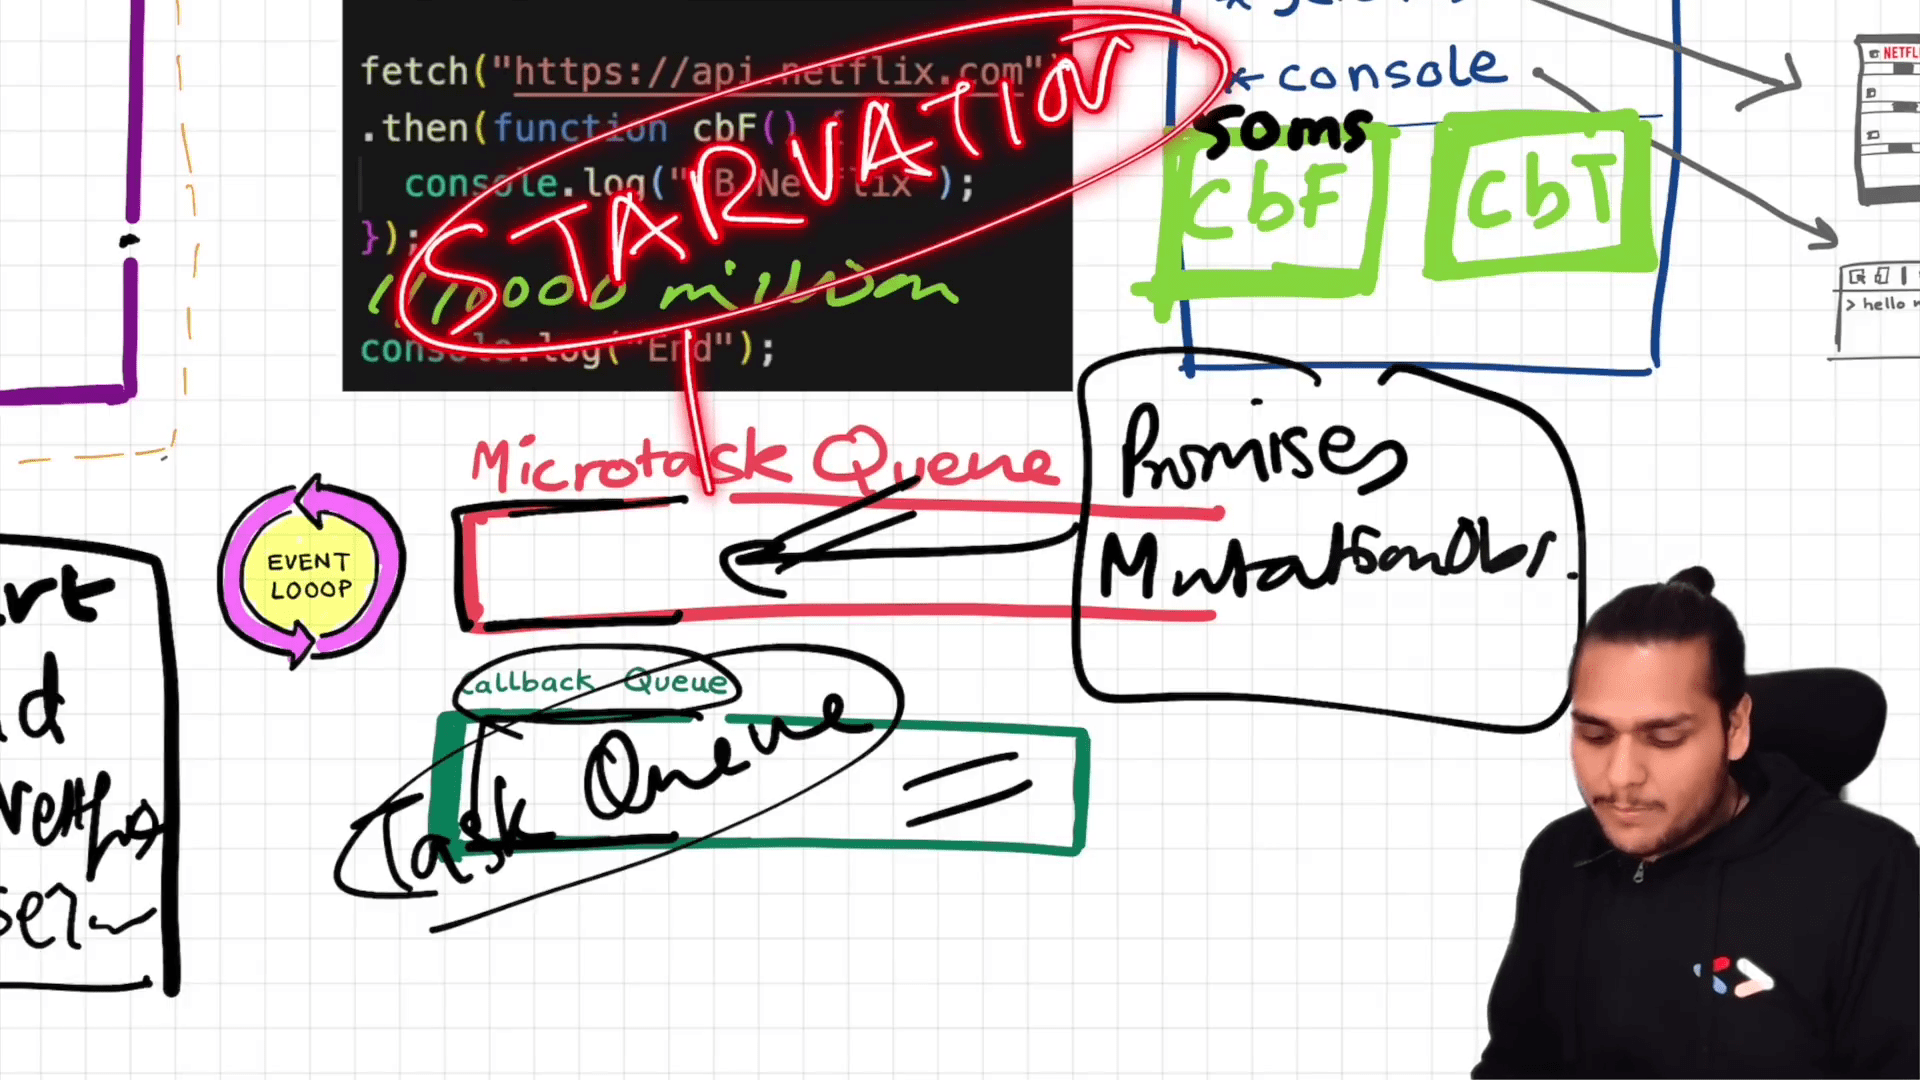 * console
fetch("https://api.netflix.com")
.then(function cbF() {
console.log("CB Netflix");
});
// 10000 million
console.log("End");
STARVATION
50ms
cbF
cbT
NETFL
> hello
Microtask Queue
Promises
MutationObs.
EVENT
LOOOP
Callback Queue
Task Queue